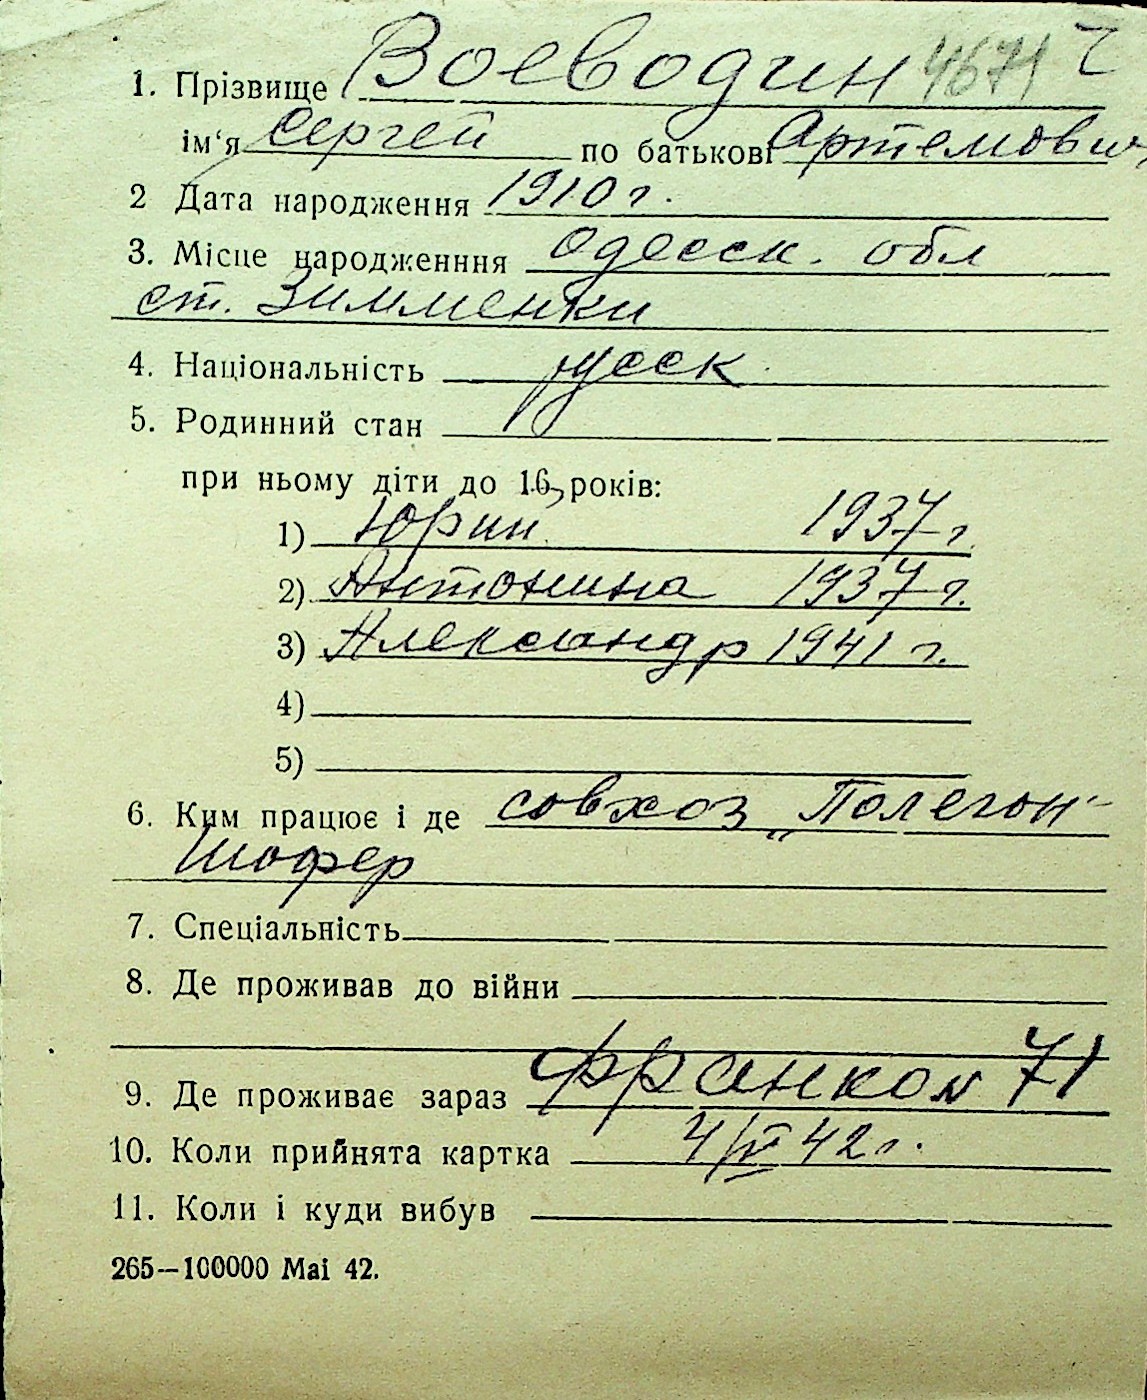 1. Прізвище Воеводин 4671 ч
ім‘я Сергей по батькові Артемович
2 Дата народження 1910 г.
3. Місце народженння Одесск. обл
ст. Зимменки
4. Національність русск
5. Родинний стан
при ньому діти до 16 років:
1) Юрий 1937 г.
2) Антонина 1937 г.
3) Александр 1941 г.
4)
5)
6. Ким працює і де совхоз „Полегон“
Шофер
7. Спеціальність
8. Де проживав до війни
9. Де проживає зараз Франко № 71
10. Коли прийнята картка 4/IV 42 г.
11. Коли і куди вибув
265—100000 Mai 42.